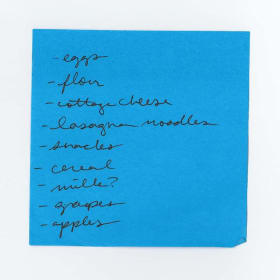 - eggs
- flour
- cottage cheese
- lasagna noodles
- snacks
- cereal
- milk?
- grapes
- apples